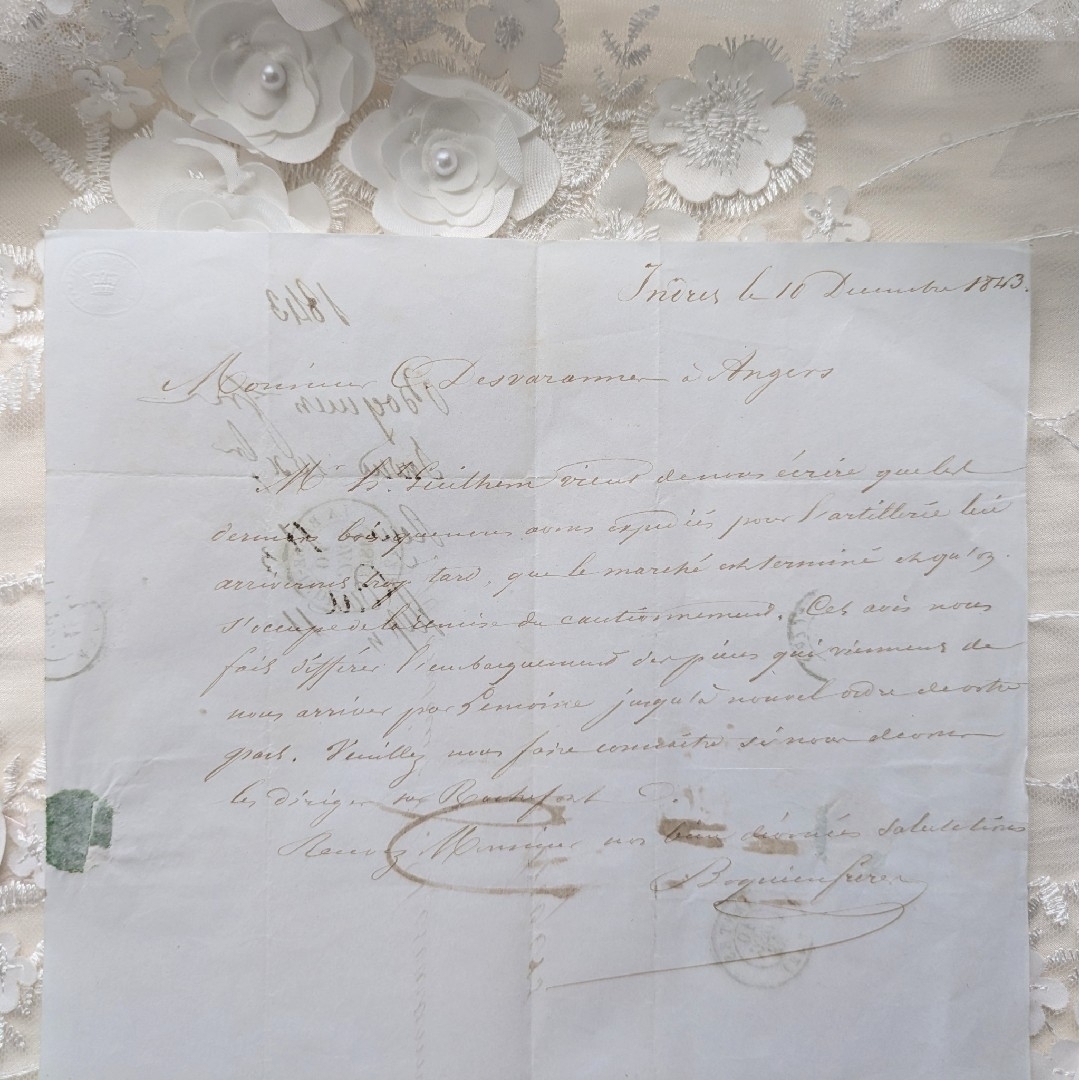 le 10 Decembre 1843.
1843
Monsieur C. Desvarannes à Angers
Mr. Bt. Guilhem vient de nous écrire que les
derniers bois que nous avons expédiés pour l'artillerie
arriverons trop tard, que le marché est terminé et qu'on
s'occupe de la remise du cautionnement. Cet avis nous
fait différer l'embarquement des pièces qui viennent de
nous arriver par Lemoine jusqu'à nouvel ordre de votre
part. Veuillez nous faire connaître si nous devons
les diriger sur Rochefort
Recevez Monsieur nos bien dévoués salutations
Boquien frères